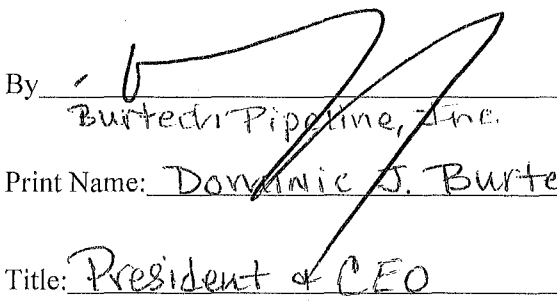 By
Burtech Pipeline, Inc.
Print Name: Dominic J. Burte
Title: President & CEO